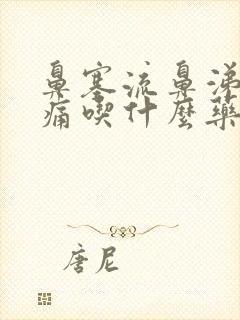 鼻塞流鼻涕
痛喫什麼藥
唐尼